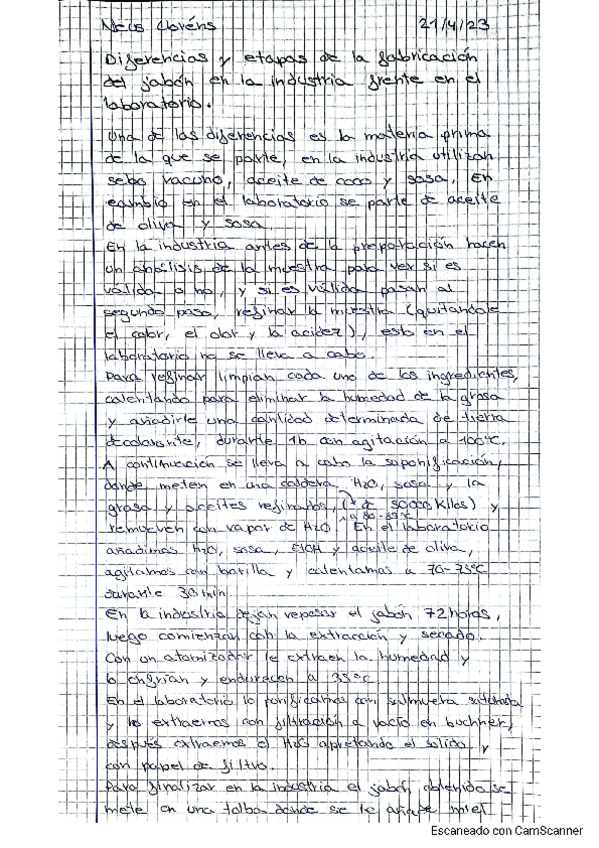 Neus Lloréns 21/4/23
Diferencias y etapas de la fabricación
del jabón en la industria frente en el
laboratorio.
Una de las diferencias es la materia prima
de la que se parte, en la industria utilizan
sebo vacuno, aceite de coco y sosa. En
cambio en el laboratorio se parte de aceite
de oliva y sosa.
En la industria antes de la preparación hacen
un análisis de la muestra para ver si es
válida o no, y si es válida pasan al
segundo paso, refinar la muestra (quitandole
el color, el olor y la acidez), esto en el
laboratorio no se lleva a cabo.
Para refinar limpian cada uno de los ingredientes,
calentando para eliminar la humedad de la grasa
y añadirle una cantidad determinada de tierra
decolorante, durante 1h con agitación a 100ºC.
A continuación se lleva a cabo la saponificación,
donde meten en una caldera, H2O, sosa y la
grasa y aceites refinados, (+ de 50000 Kilos) y
remueven con vapor de H2O a 80-85ºC. En el laboratorio
añadimos H2O, sosa, EtOH y aceite de oliva,
agitamos con barilla y calentamos a 70-75ºC
durante 30 min.
En la industria dejan reposar el jabón 72 horas,
luego comienzan con la extracción y secado.
Con un atomizador le extraen la humedad y
lo enfrían y endurecen a 35ºC
En el laboratorio lo purificamos con salmuera saturada
y lo extraemos con filtración a vacío en buchner,
después extraemos el H2O apretando el sólido y
con papel de filtro.
Para finalizar en la industria el jabón obtenido se
mete en una tolba donde se le añade miel
Escaneado con CamScanner